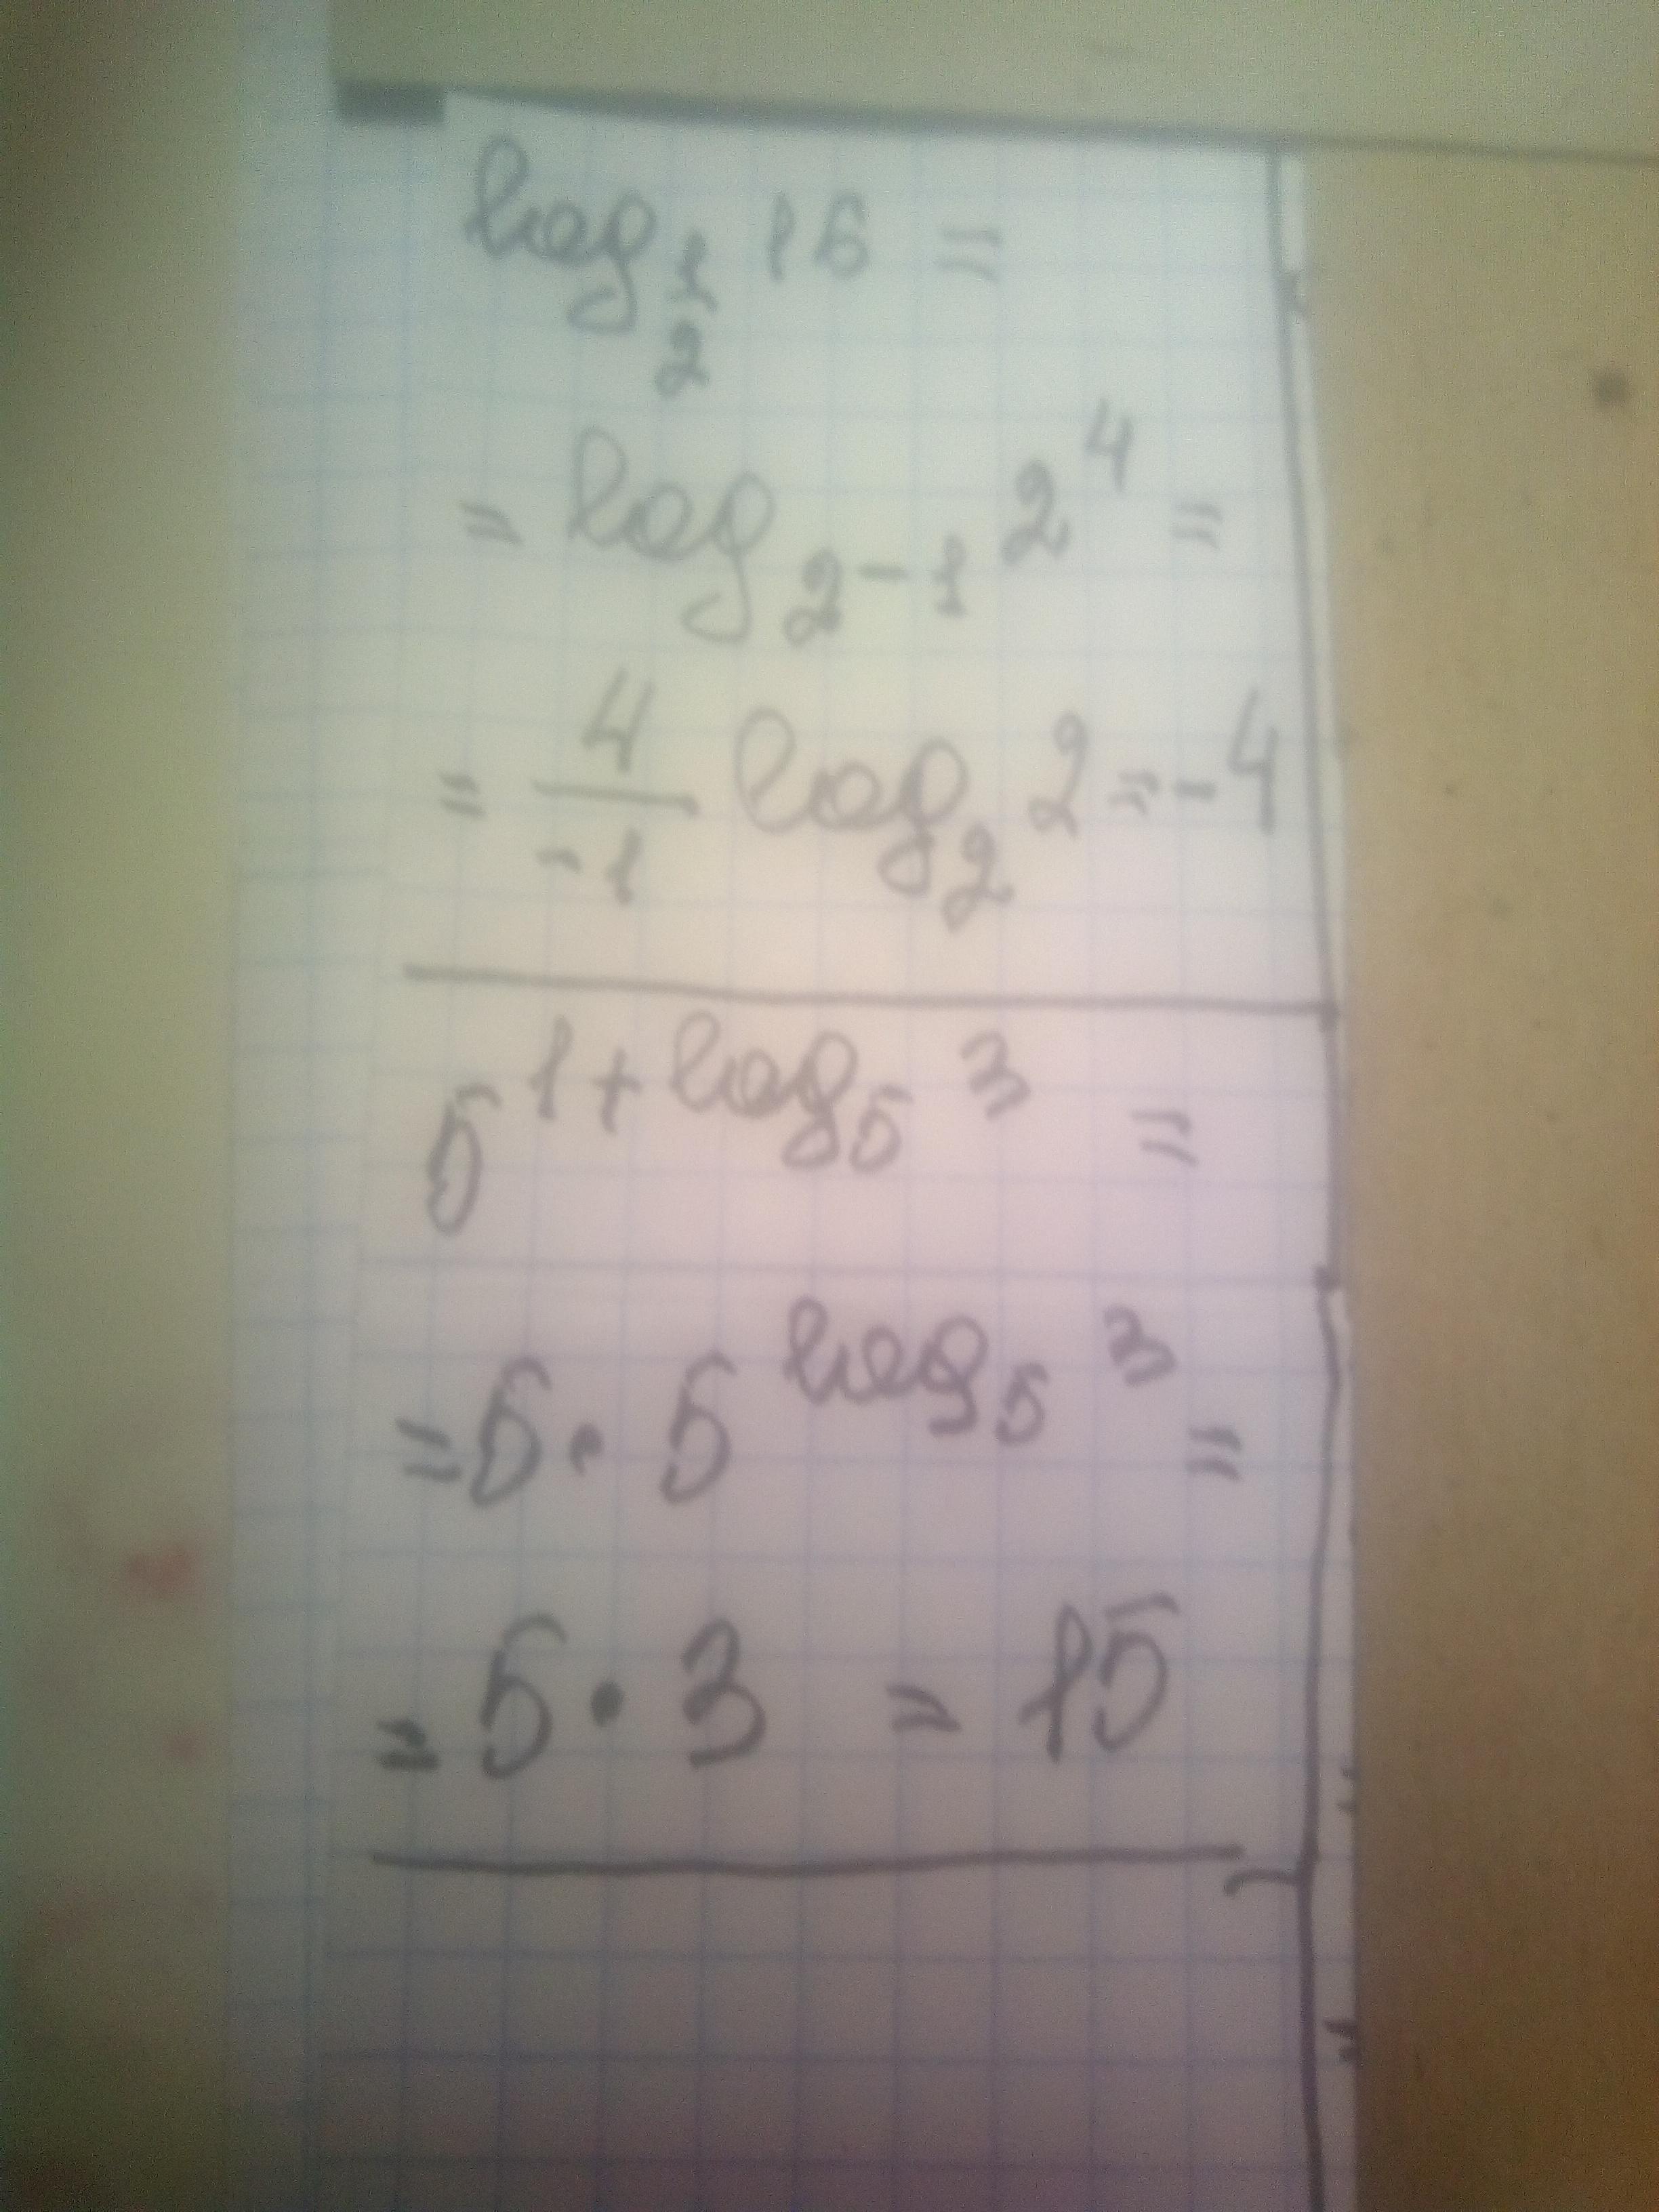 log_{1/2} 16 =
= log_{2-1} 2^4 =
= 4/-1 log_2 2 = -4
5^{1+log_5 3} =
= 5 · 5^{log_5 3} =
= 5 · 3 = 15